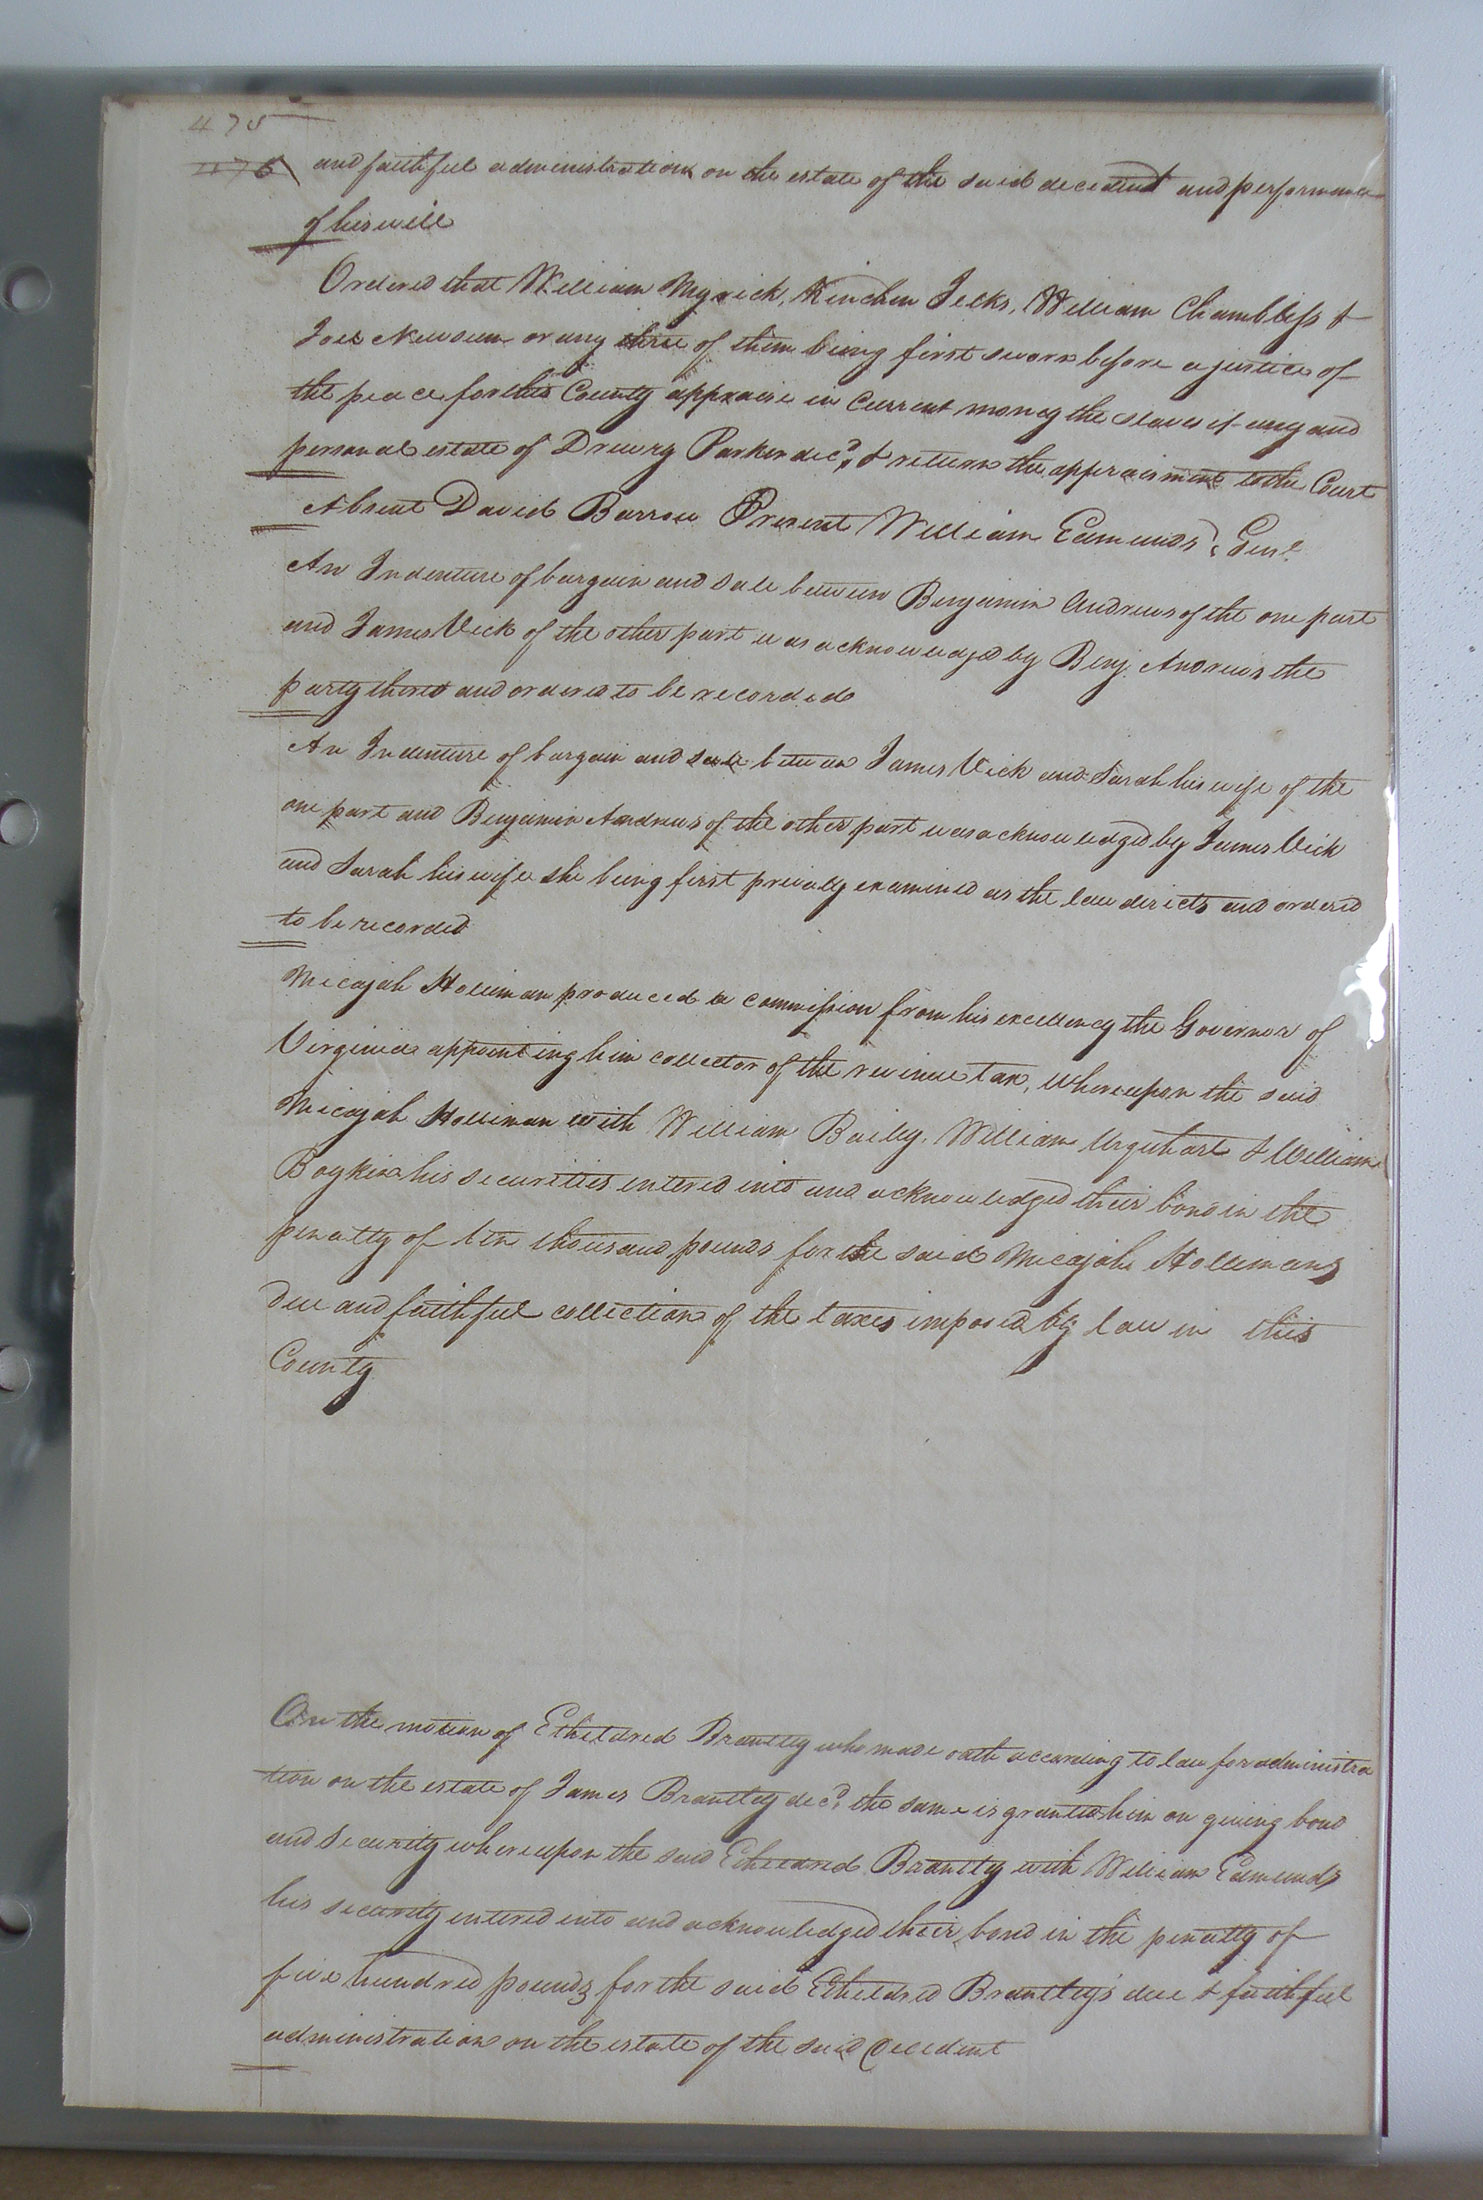 475
476 and faithful administration on the estate of the said decedent and performance
of his will
Ordered that William Myrick, Kinchen Jelks, William Chambless &
Joel Newsum or any three of them being first sworn before a justice of
the peace for this County appraise in Current money the slaves if any and
personal estate of Drewry Parker decd, & return the appraisment to the Court
Absent David Barrow Present William Edmunds, Gent
An Indenture of bargain and sale between Benjamin Andrews of the one part
and James Vick of the other part was acknowledged by Benj. Andrews the
party thereto and ordered to be recorded
An Indenture of bargain and sale between James Vick and Sarah his wife of the
one part and Benjamin Andrews of the other part was acknowledged by James Vick
and Sarah his wife she being first privally examined as the law directs and ordered
to be recorded
Micajah Holliman produced a commission from his excellency the Governor of
Virginia appointing him collector of the revinue tax, Whereupon the said
Micajah Holliman with William Baily, William Urquhart & William
Boykin his securities entered into and acknowledged their bond in the
penalty of ten thousand pounds for the said Micajah Hollimans
due and faithful collection of the taxes imposed by law in this
County
On the motion of Etheldred Brantley who made oath according to law for administra
tion on the estate of James Brantley decd, the same is granted him on giving bond
and security whereupon the said Etheldred Brantley with William Edmunds
his security entered into and acknowledged their bond in the penalty of
five hundred pounds for the said Etheldred Brantley's due & faithful
administration on the estate of the said decedent